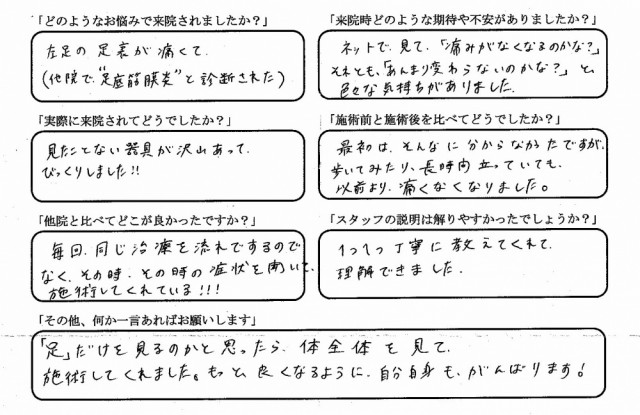 「どのようなお悩みで来院されましたか？」
左足の足裏が痛くて.
(他院で、"足底筋膜炎"と診断された)
「来院時どのような期待や不安がありましたか？」
ネットで、見て、「痛みがなくなるのかな？」
それとも、「あんまり変わらないのかな？」と、
色々な気持ちがありました.
「実際に来院されてどうでしたか？」
見たことない器具が沢山あって.
びっくりしました!!
「施術前と施術後を比べてどうでしたか？」
最初は、そんなに分からなかったですが、
歩いてみたり、長時間立っていても.
以前より、痛くなくなりました。
「他院と比べてどこが良かったですか？」
毎回、同じ治療を流れでするので
なく、その時、その時の症状を聞いて、
施術してくれている!!!
「スタッフの説明は解りやすかったでしょうか？」
1つ1つ丁寧に教えてくれて.
理解できました.
「その他、何か一言あればお願いします」
「足」だけを見るのかと思ったら、体全体を見て.
施術してくれました。もっと良くなるように、自分自身も、がんばります!